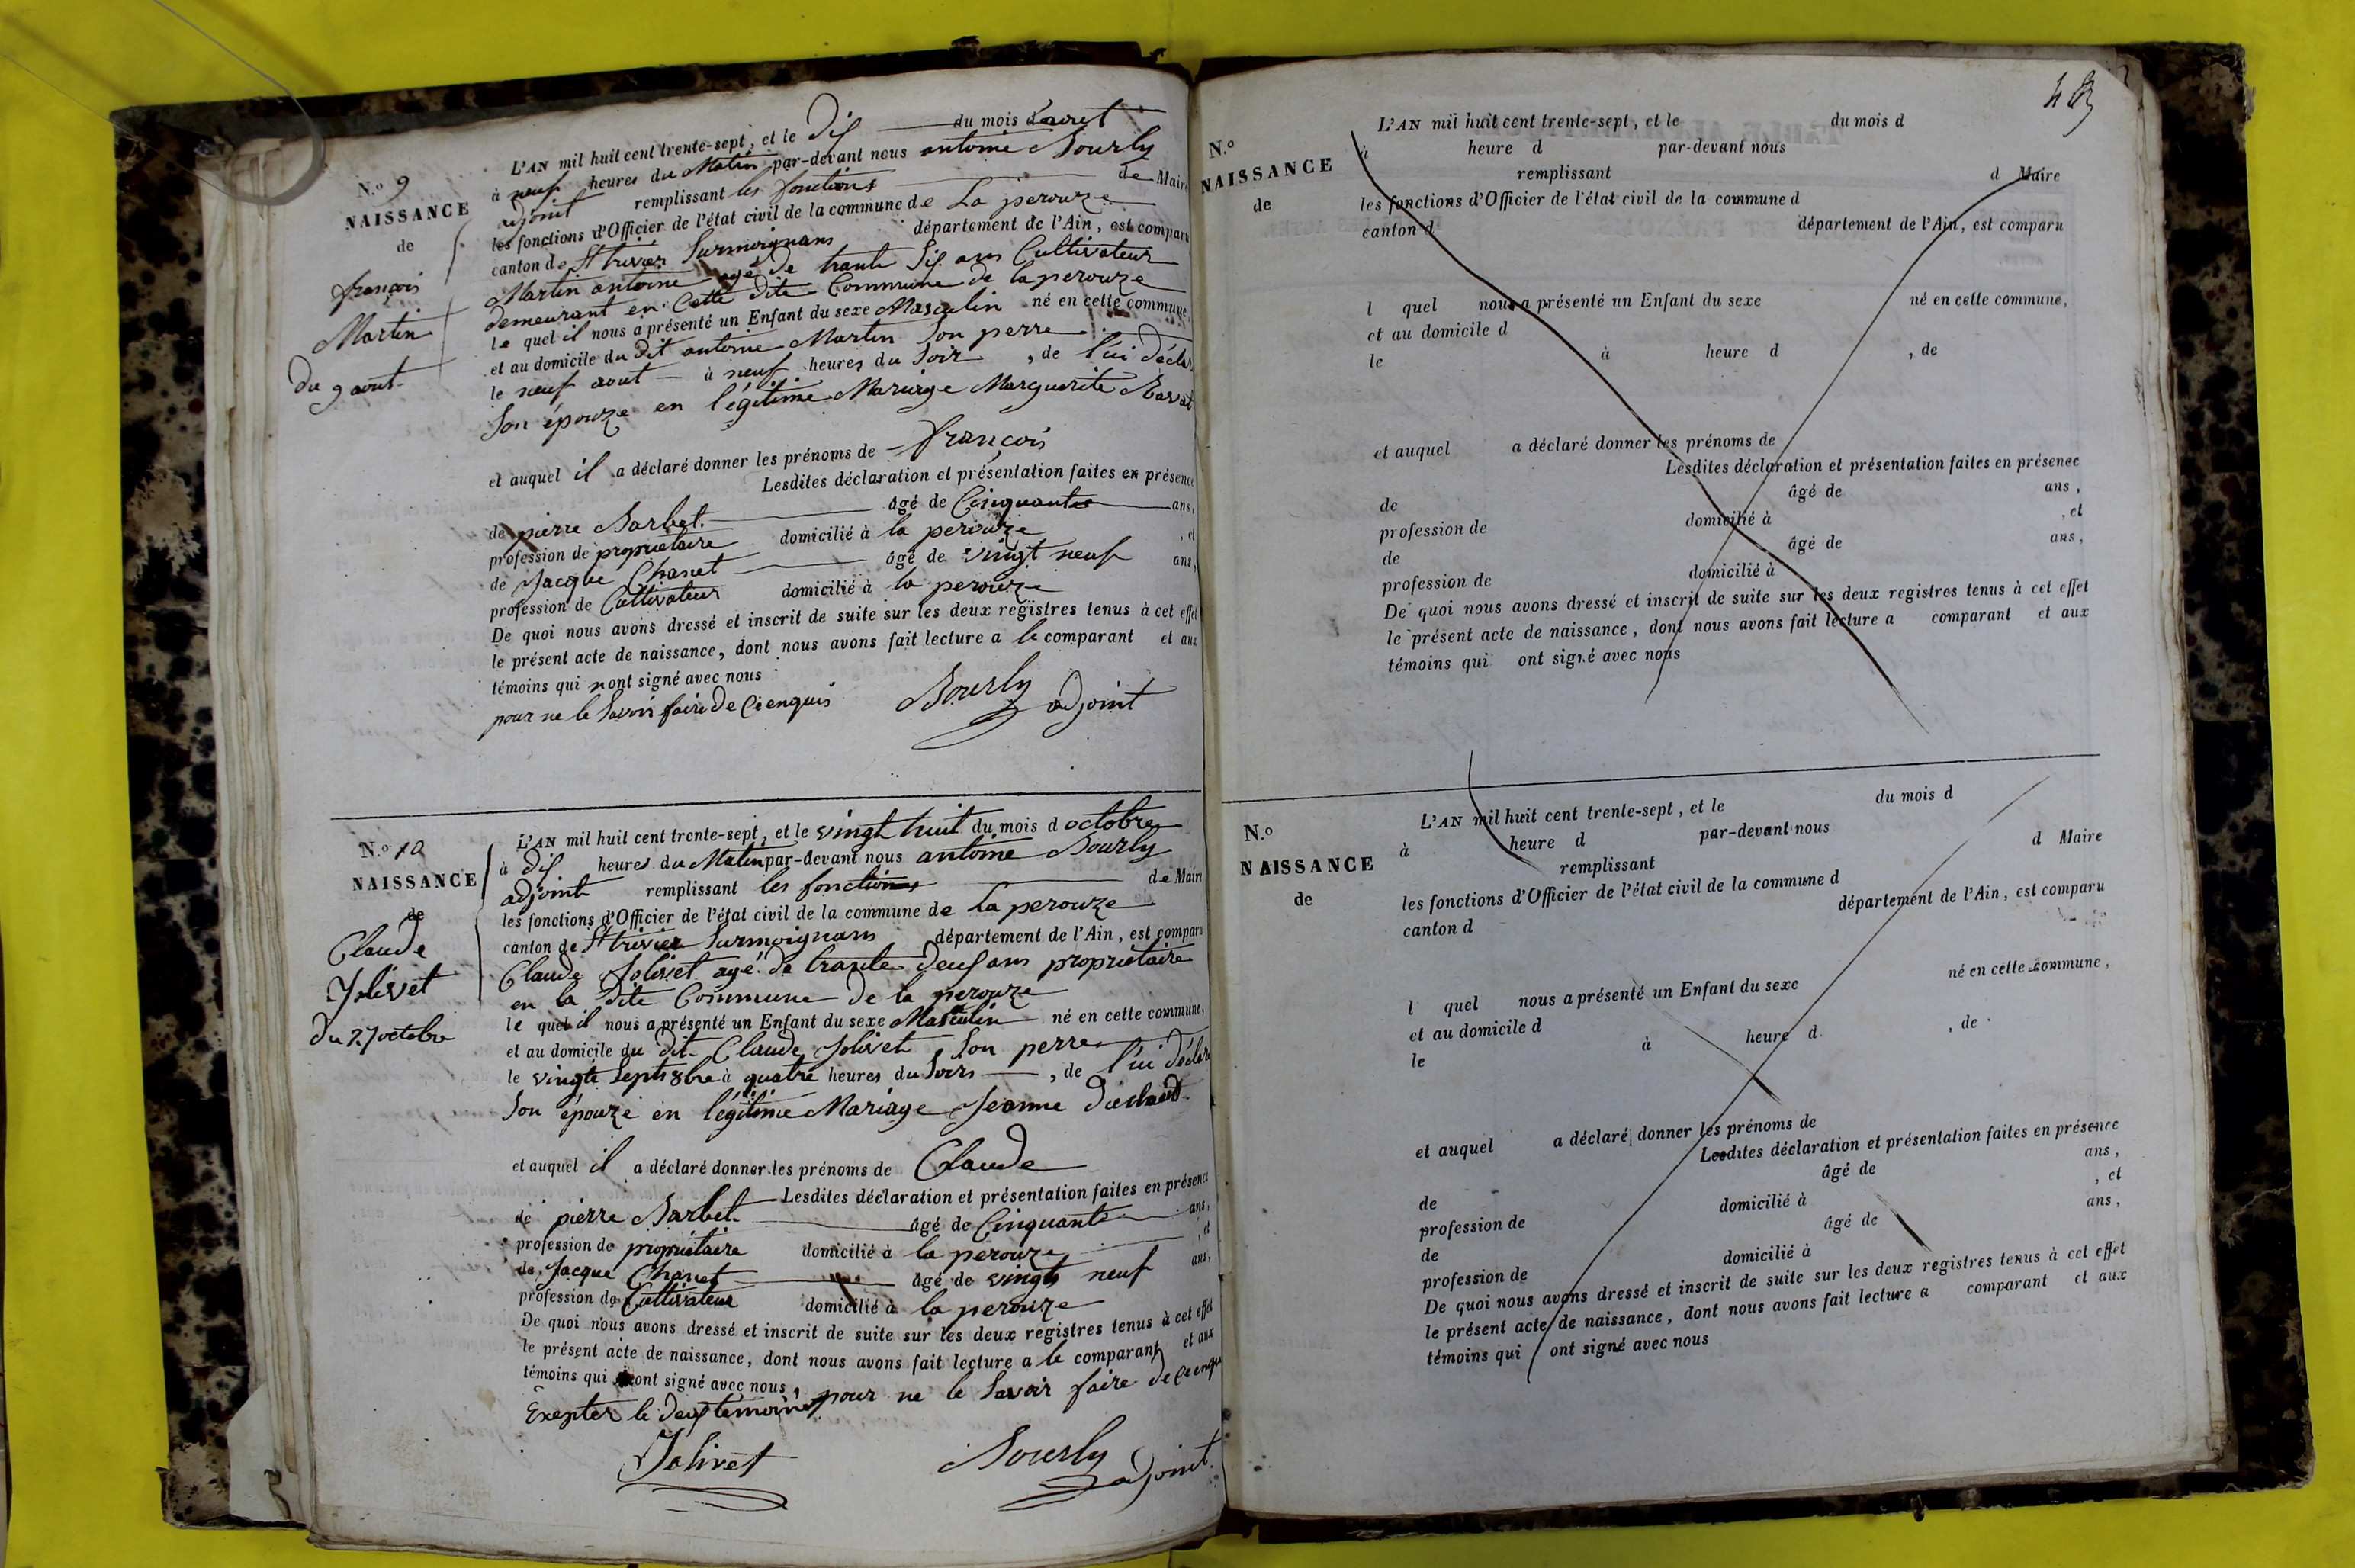 N.o 9
NAISSANCE
de
françois
Martin
du 9 aout
L'AN mil huit cent trente-sept, et le Dix du mois d'aout
à neuf heures du Matin par-devant nous antoine Bourly
adjoint remplissant les fonctions de Maire
les fonctions d'Officier de l'état civil de la commune de La perouze
canton de St trivier Surmoignans département de l'Ain, est comparu
Martin antoine agé de trante Six ans Cultivateur
demeurant en Cette dite Commune de la perouze
le quel il nous a présenté un Enfant du sexe Masculin né en cette commune,
et au domicile du dit antoine Martin Son perre
le neuf aout à neuf heures du Soir, de l'ui Déclar
Son épouze en légitime Mariage Marguerite
et auquel il a déclaré donner les prénoms de françois
Lesdites déclaration et présentation faites en présence
de pierre Barbet âgé de Cinquante ans,
profession de propriétaire domicilié à la perouze, et
de Jacque Chanet âgé de vingt neuf ans,
profession de Cultivateur domicilié à la perouze
De quoi nous avons dressé et inscrit de suite sur les deux registres tenus à cet effet
le présent acte de naissance, dont nous avons fait lecture a le comparant et aux
témoins qui nont signé avec nous
pour ne le Savoir faire de Ce enquis
Bourly adjoint
N.o 10
NAISSANCE
de
Claude
Jolivet
du 27 octobre
L'AN mil huit cent trente-sept, et le vingt huit du mois d octobre
à dix heures du Matin par-devant nous antoine Bourly
adjoint remplissant les fonctions de Maire
les fonctions d'Officier de l'état civil de la commune de La perouze
canton de St trivier Surmoignans département de l'Ain, est comparu
Claude Jolivet agé de trante deux ans propriétaire
en la dite Commune de la perouze
le quel il nous a présenté un Enfant du sexe Masculin né en cette commune,
et au domicile du dit Claude Jolivet Son perre
le vingt Sept 8bre à quatre heures du Soirs, de l'ui Déclar
Son épouze en légitime Mariage Jeanne
et auquel il a déclaré donner les prénoms de Claude
Lesdites déclaration et présentation faites en présence
de pierre Barbet âgé de Cinquante ans,
profession de propriétaire domicilié à la perouze, et
de Jacque Chanet âgé de vingt neuf ans,
profession de Cultivateur domicilié à la perouze
De quoi nous avons dressé et inscrit de suite sur les deux registres tenus à cet effet
le présent acte de naissance, dont nous avons fait lecture a le comparant et aux
témoins qui nont signé avec nous, pour ne le Savoir faire de Ce enqu
Exepter le deux temoins
Jolivet Bourly adjoint
N.o
NAISSANCE
de
L'AN mil huit cent trente-sept, et le du mois d
à heure d par-devant nous
remplissant d Maire
les fonctions d'Officier de l'état civil de la commune d
canton d département de l'Ain, est comparu
l quel nous a présenté un Enfant du sexe né en cette commune,
et au domicile d
le à heure d , de
et auquel a déclaré donner les prénoms de
Lesdites déclaration et présentation faites en présence
de âgé de ans,
profession de domicilié à , et
de âgé de ans,
profession de domicilié à
De quoi nous avons dressé et inscrit de suite sur les deux registres tenus à cet effet
le présent acte de naissance, dont nous avons fait lecture a comparant et aux
témoins qui ont signé avec nous
N.o
NAISSANCE
de
L'AN mil huit cent trente-sept, et le du mois d
à heure d par-devant nous
remplissant d Maire
les fonctions d'Officier de l'état civil de la commune d
canton d département de l'Ain, est comparu
l quel nous a présenté un Enfant du sexe né en cette commune,
et au domicile d
le à heure d , de
et auquel a déclaré donner les prénoms de
Lesdites déclaration et présentation faites en présence
de âgé de ans,
profession de domicilié à , et
de âgé de ans,
profession de domicilié à
De quoi nous avons dressé et inscrit de suite sur les deux registres tenus à cet effet
le présent acte de naissance, dont nous avons fait lecture a comparant et aux
témoins qui ont signé avec nous